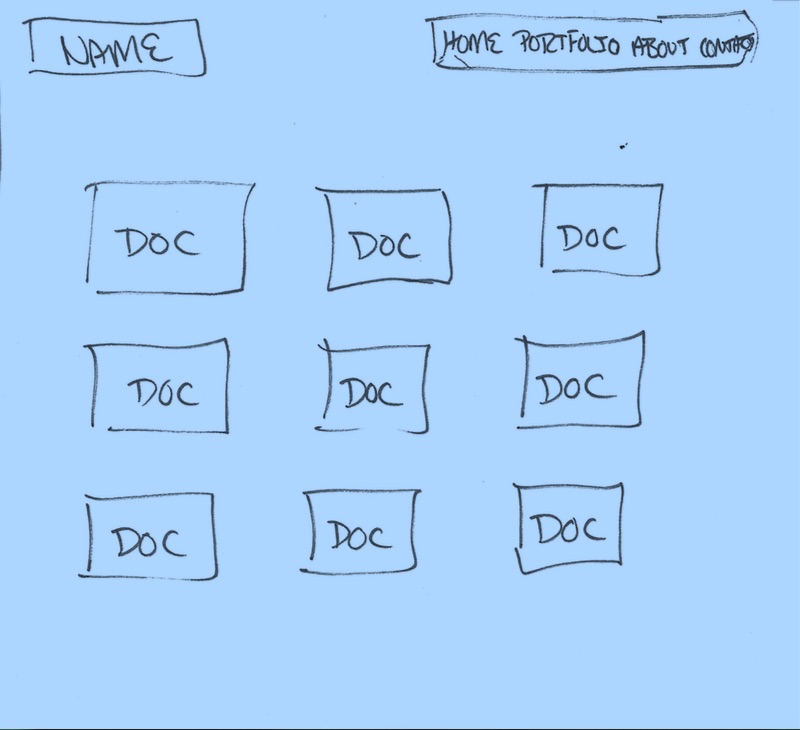 NAME
HOME PORTFOLIO ABOUT CONTACT
DOC DOC DOC
DOC DOC DOC
DOC DOC DOC